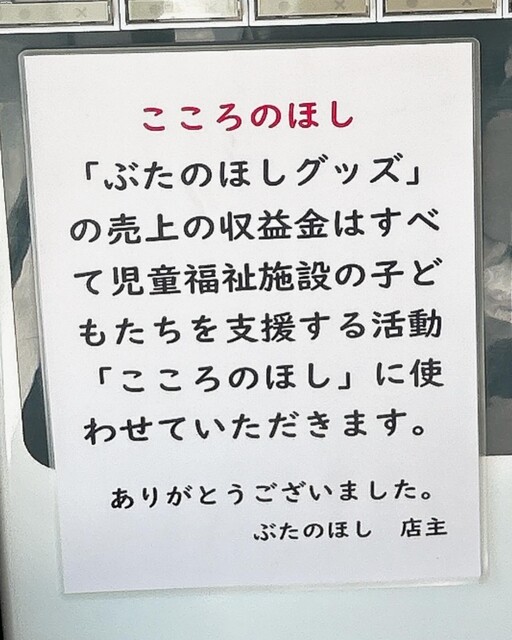 こころのほし
「ぶたのほしグッズ」
の売上の収益金はすべ
て児童福祉施設の子ど
もたちを支援する活動
「こころのほし」に使
わせていただきます。
ありがとうございました。
ぶたのほし　店主